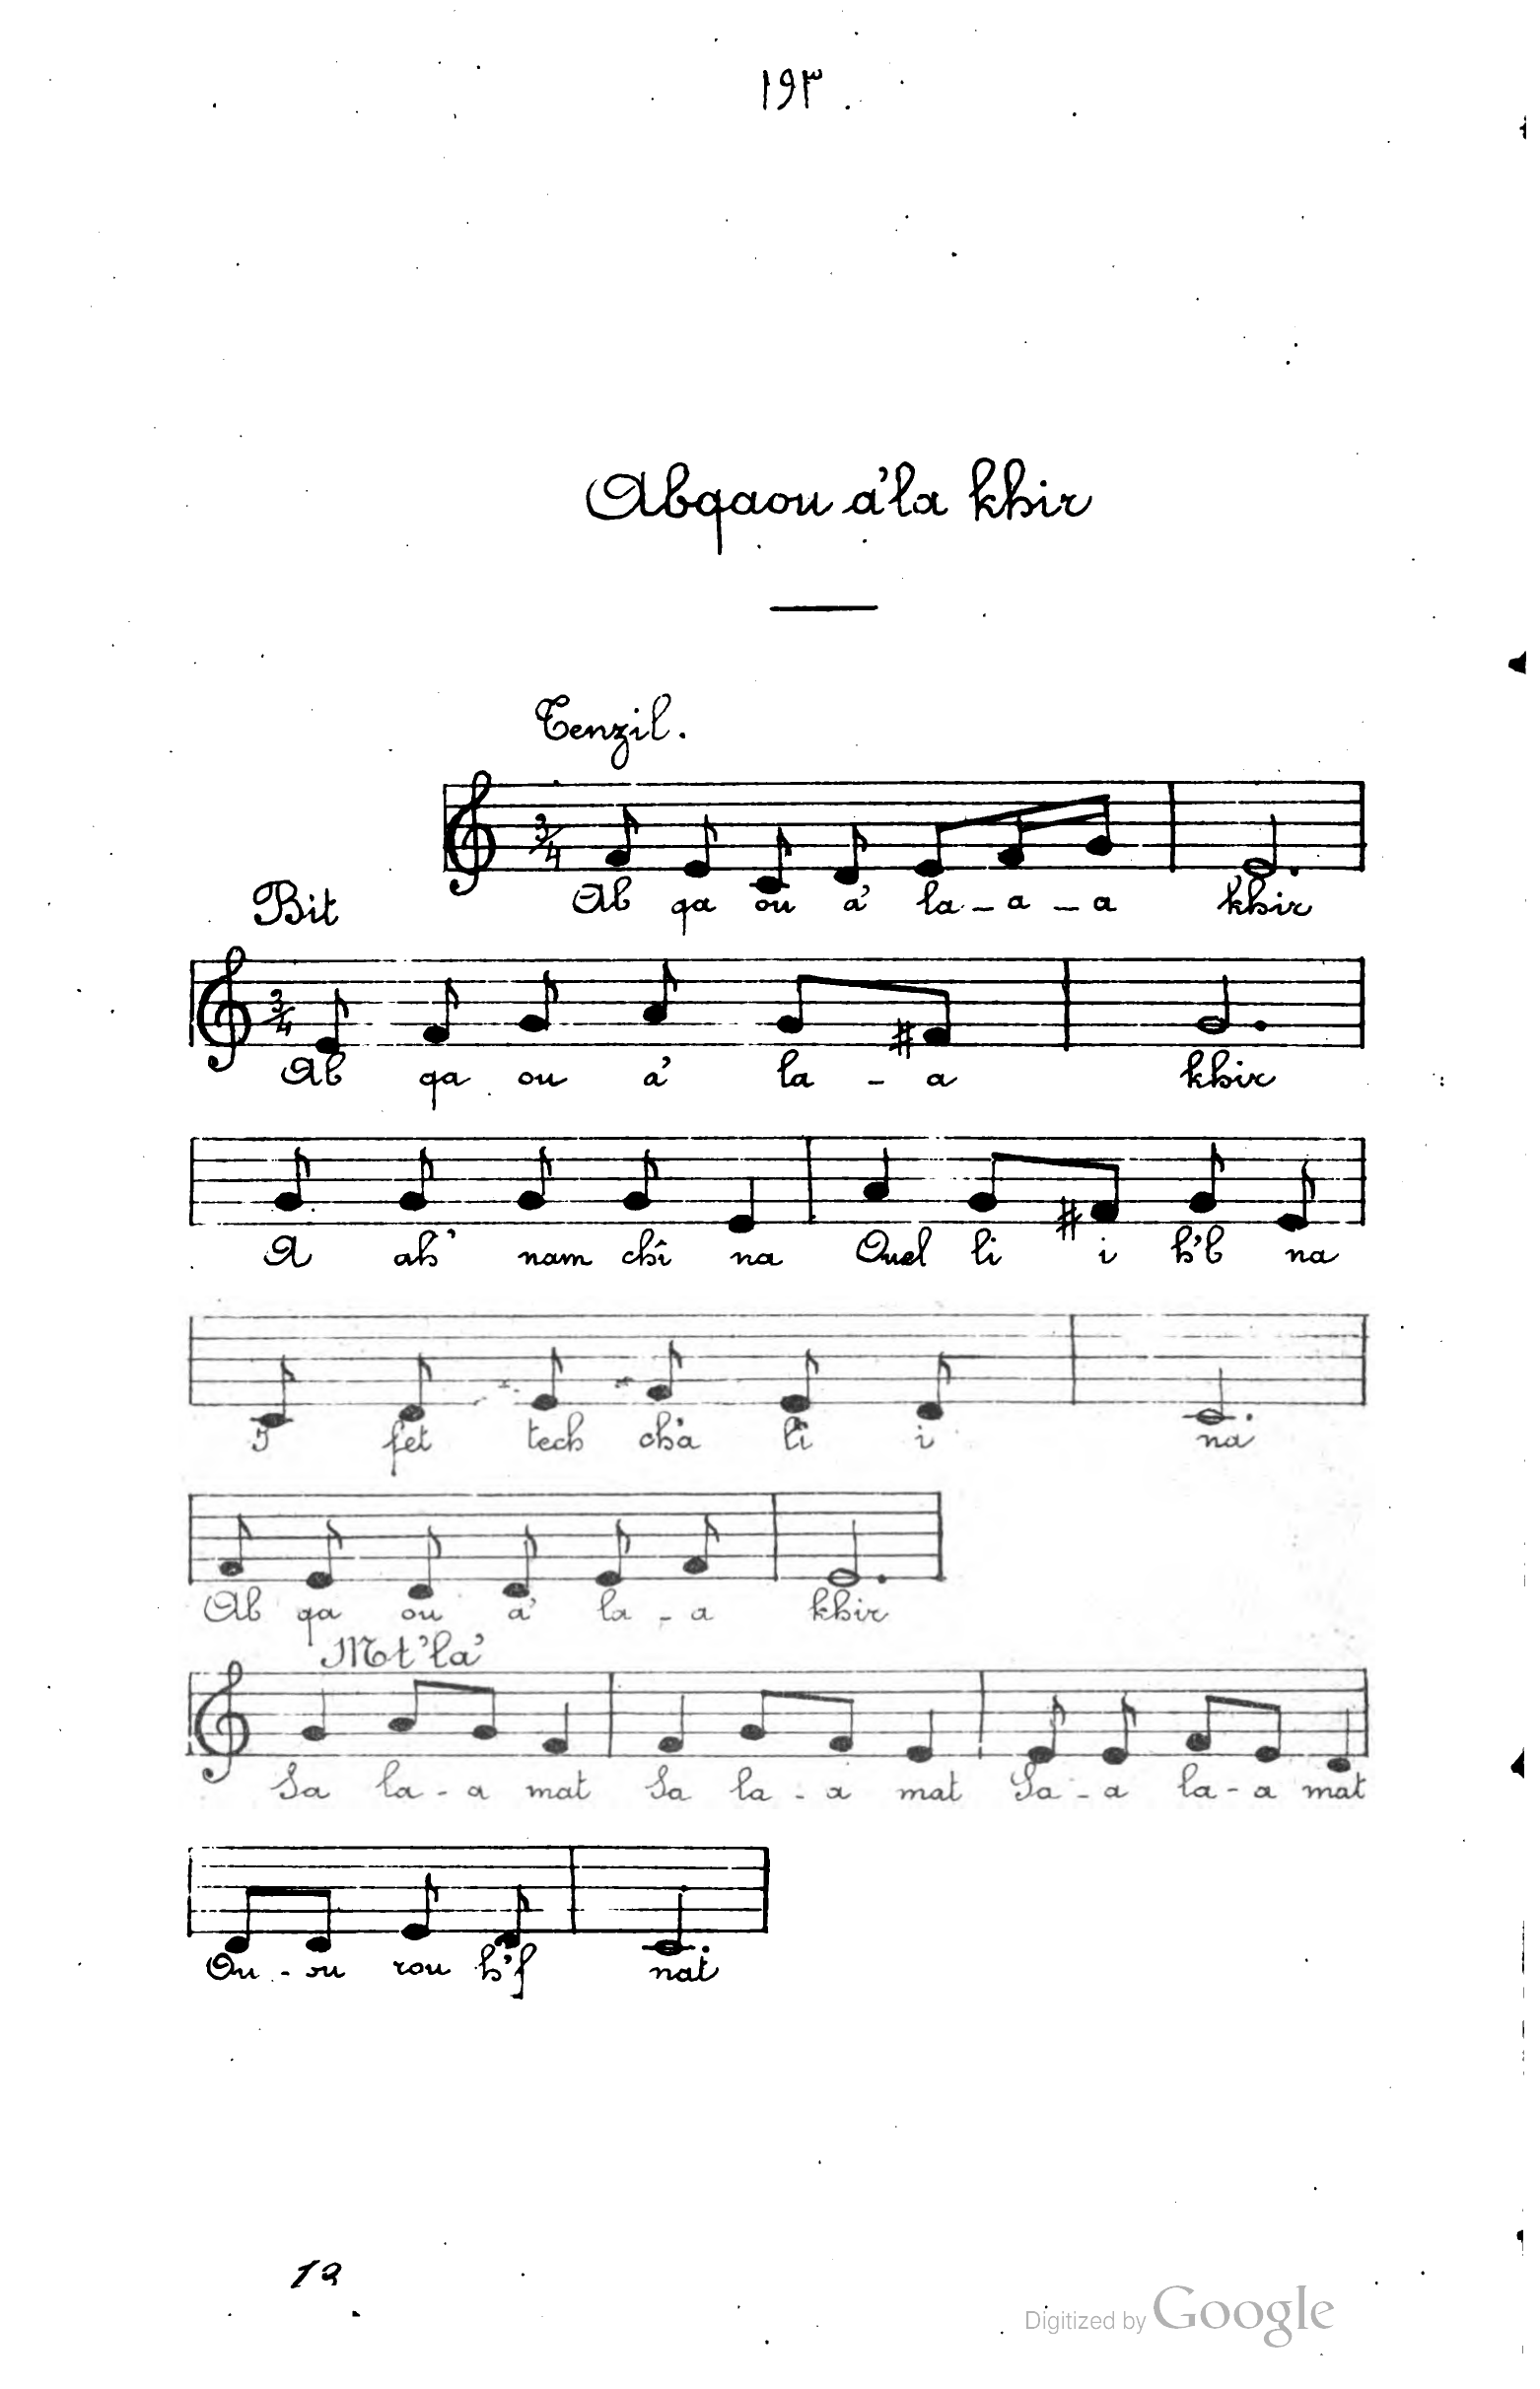 ١٩٣
Abqaou a'la khir
Tenzil.
3/4
Ab qa ou a' la - a - a khir
Bit
3/4
Ab qa ou a' la - a khir
A ah' nam chî na Ouel li i h'b na
fet tech cha lî i na
Ab qa ou a' la - a khir
Mt'la'
Sa la - a mat Sa la - a mat Sa - a la - a mat
Ou - ou rou h'f nat
Digitized by Google